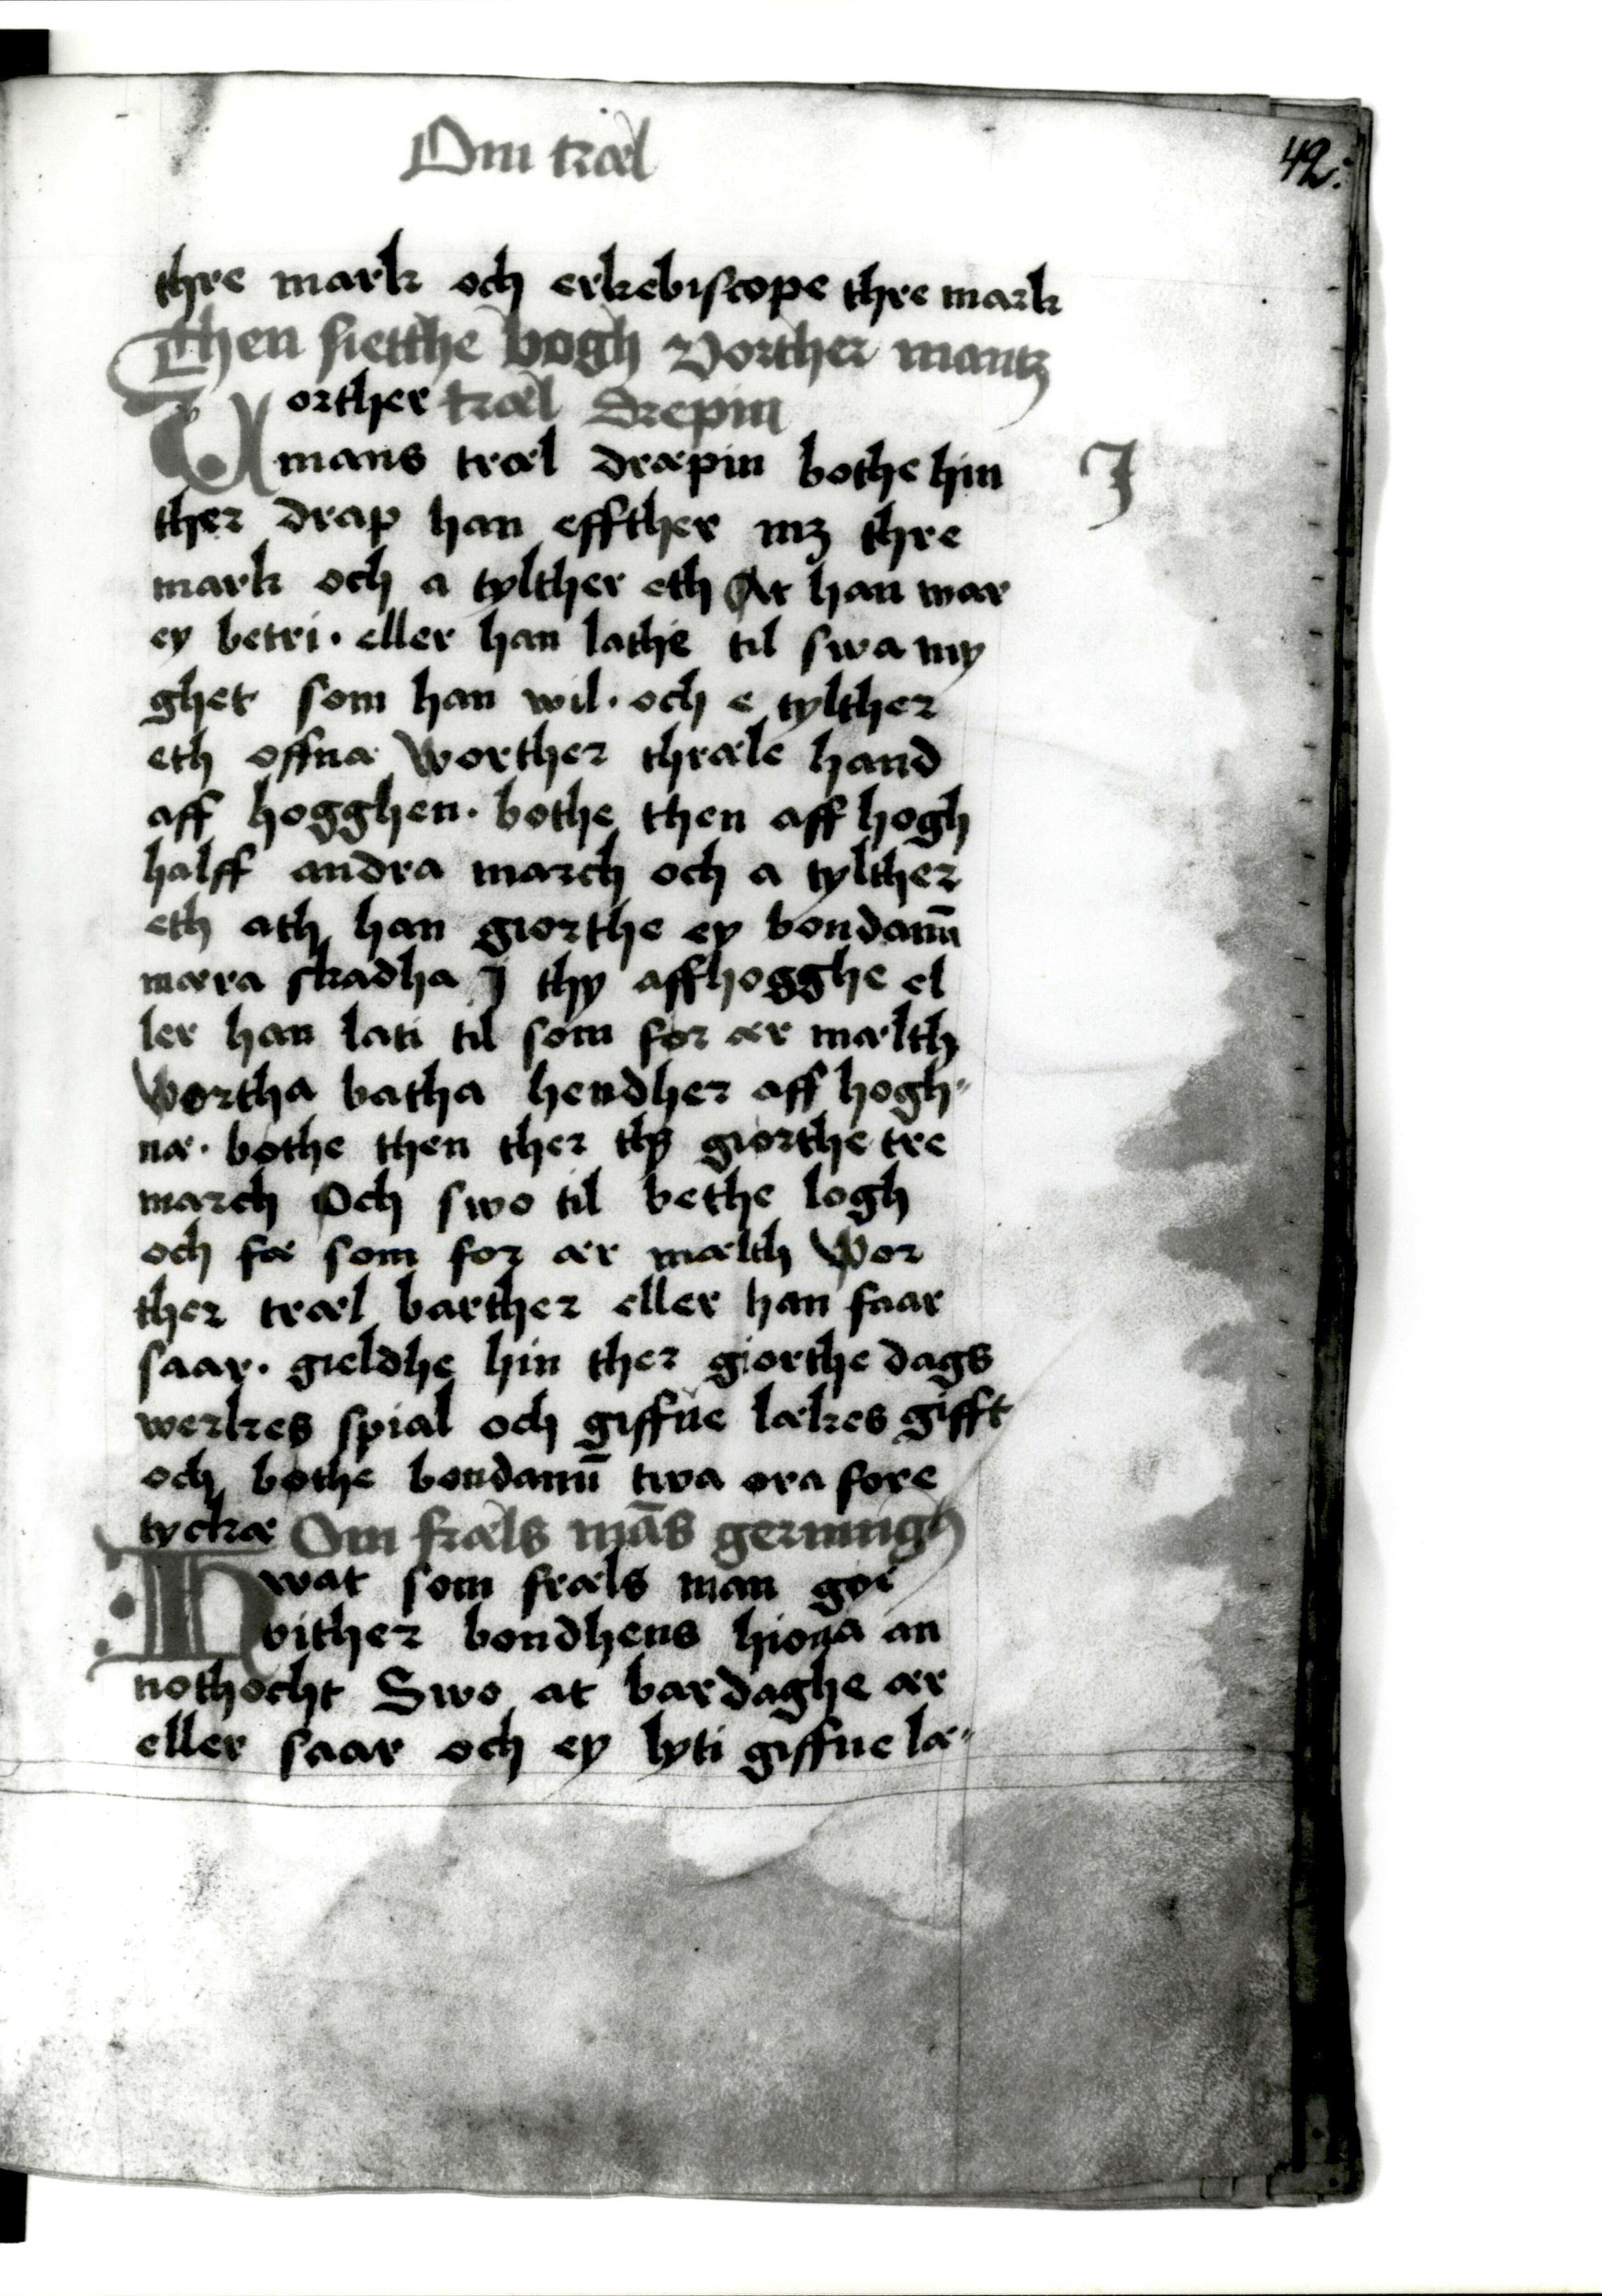 Om træl
42:
thre mark och erkebiscope thre mark
Then siætthe bogh Vorther mantz
Vorther træl drepin
mans træl dræpin bothe hin
I
ther drap han effther mꝫ thre
mark och a tylther eth At han war
ey betri · eller han lathe til swa my
ghet som han wil · och e tylther
eth offna Worther thræle hand
aff hogghen · bothe then aff hogh
halff andra march och a tylther
eth ath han giorthe ey bondanū
mæra skadha J thy affhogghe el
ler han lati til som for ær mælth
Wortha batha hendher aff hogh„
næ · bothe then ther thꝫ giorthe tre
march Och swo til bethe logh
och fæ som for ær mælth Wor
ther træl barther eller han faar
saar · gieldhe hin ther giorthe dags
werkes spial och giffue lækes gifft
och bothe bondanū twa ora fore
tyckæ Om fræls mās gerningh
Hwat som fræls man gør
vither bondhens hiona an
nothocht Swo at bardaghe ær
eller saar och ey lyti giffue læ„